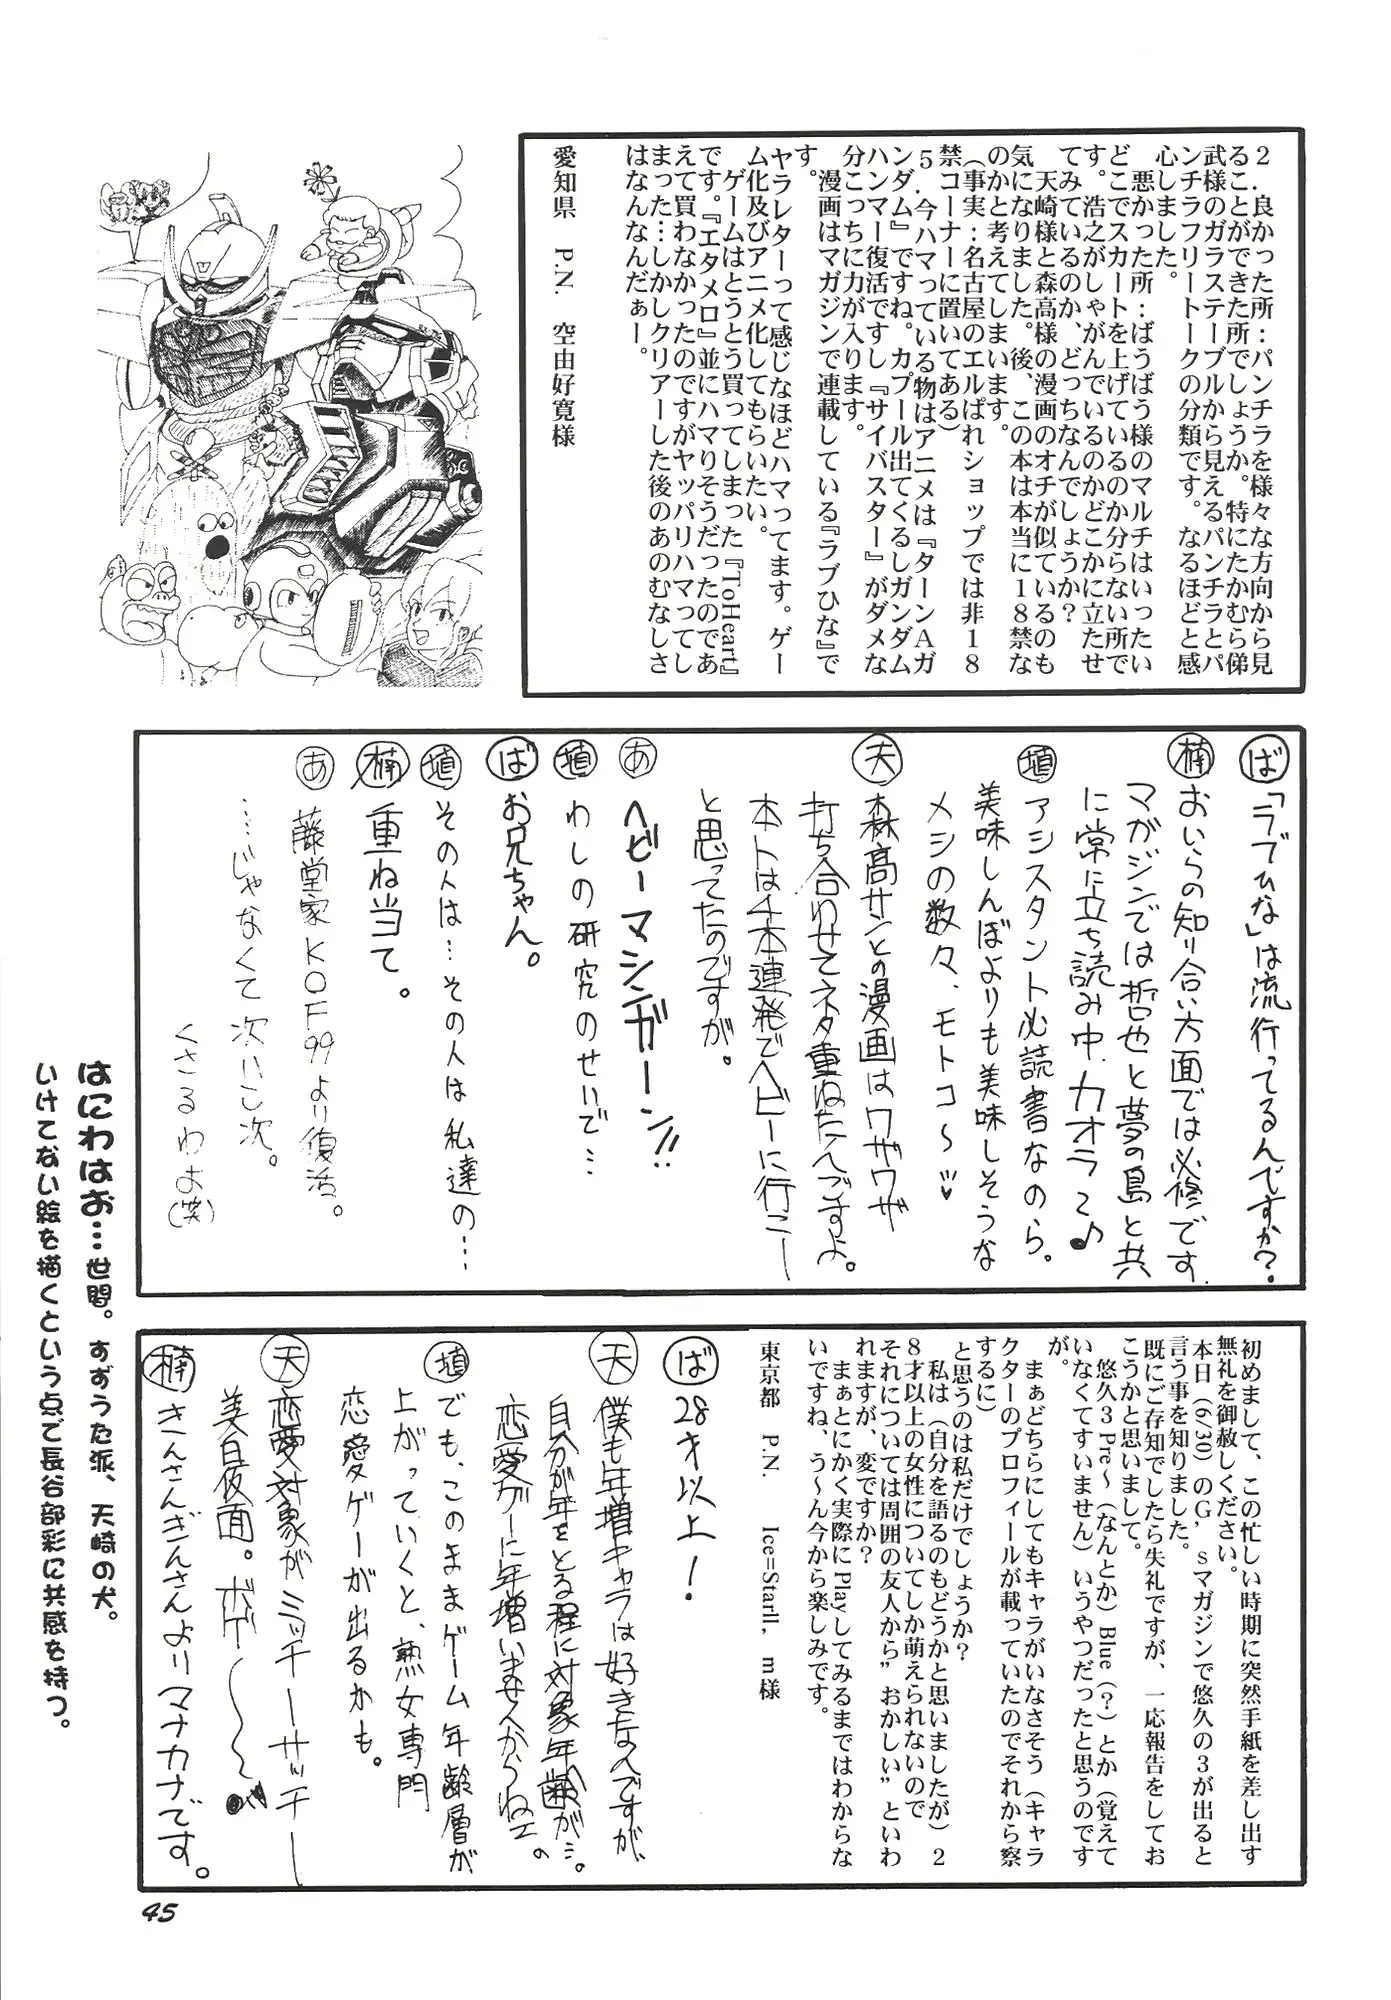 2.良かった所:パンチラを様々な方向から見
ることができた所でしょうか。特にたかむら俤
武様のガラステーブルから見えるパンチラとパ
ンチラフリートークの分類です。なるほどと感
心しました。
悪かった所:ばうばう様のマルチはいったい
どこでスカートを上げているのか分らない所で
す。浩之がしゃがんでいるのかどこかに立たせ
てみているのか、どっちなんでしょうか?
天崎様と森高様の漫画のオチが似ているのも
気になりました。後、この本は本当に18禁な
のかと考えてしまいます。
(事実:名古屋のエルぱれショップでは非18
禁コーナーに置いてある)
5.今ハマっている物はアニメは『ターンAガ
ンダム』ですね。カプール出てくるしガンダム
ハンマー復活ですし『サイバスター』がダメな
分こっちに力が入ります。
漫画はマガジンで連載している『ラブひな』で
す。
ヤラレターって感じなほどハマってます。ゲー
ム化及びアニメ化してもらいたい。
ゲームはとうとう買ってしまった『ToHeart』
です。『エタメロ』並にハマりそうだったのであ
えて買わなかったのですがヤッパリハマってし
まった…しかしクリアーした後のあのむなしさ
はなんなんだぁー。
愛知県 P.N. 空由好寛様
ば 「ラブひな」は流行ってるんですか?
楠 おいらの知り合い方面では必修です。
マガジンでは哲也と夢の島と共
に常に立ち読み中。カオラて♪
埴 アシスタント必読書なのら。
美味しんぼよりも美味しそうな
メシの数々、モトコ〜♥
天 森高サンとの漫画はワザワザ
打ち合わせてネタ重ねたんですよ。
本トは千本連発でヘビーに行こー
と思ってたのですが。
あ ヘビーマシンガーン!!
埴 わしの研究のせいで…
ば お兄ちゃん。
埴 その人は…その人は私達の…
楠 重ね当て。
あ 藤堂家KOF99より復活。
……じゃなくて次いこ次。
くさるわよ(笑)
初めまして、この忙しい時期に突然手紙を差し出す
無礼を御赦しください。
本日(6/30)のG'sマガジンで悠久の3が出ると
言う事を知りました。
既にご存知でしたら失礼ですが、一応報告をしてお
こうかと思いまして。
悠久3 Pre〜(なんとか)Blue(?)とか(覚えて
いなくてすいません)いうやつだったと思うのです
が。
まぁどちらにしてもキャラがいなさそう(キャラ
クターのプロフィールが載っていたのでそれから察
するに)
と思うのは私だけでしょうか?
私は(自分を語るのもどうかと思いましたが)2
8才以上の女性についてしか萌えられないので
それについては周囲の友人から"おかしい"といわ
れますが、変ですか?
まぁとにかく実際にPlayしてみるまではわからな
いですね、う〜ん今から楽しみです。
東京都 P.N. Ice=Starll, m様
ば 28才以上!
天 僕も年増キャラは好きなんですが、
自分が年をとる程に対象年齢が…。
恋愛ゲーに年増いませんからねェ。
埴 でも、このままゲーム年齢層が
上がっていくと、熟女専門
恋愛ゲーが出るかも。
天 恋愛対象がミッチーサッチー
美白仮面。ボゲ〜〜
楠 きんさんぎんさんよりマナカナです。
はにわはお…世間。すずうた派、天崎の犬。
いけてない絵を描くという点で長谷部彩に共感を持つ。
45